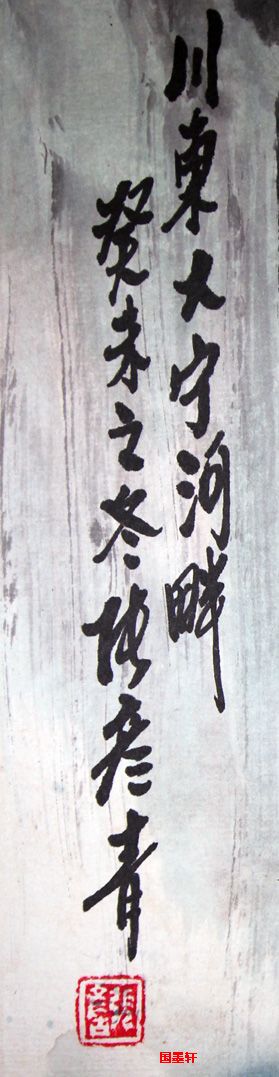 川東大宁河畔
癸未之冬张彦青
国墨轩